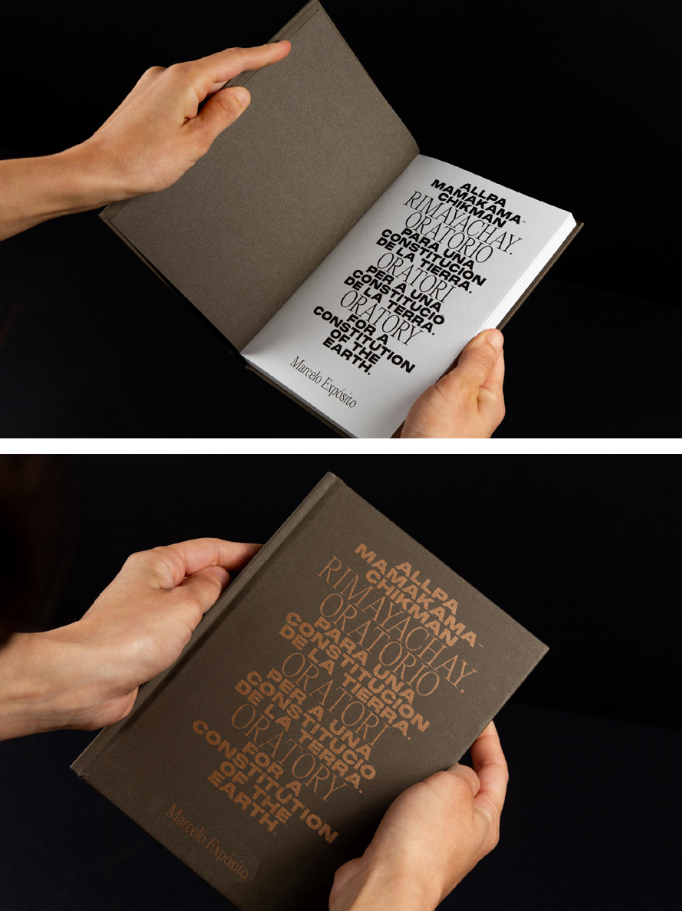 ALLPA
MAMAKAMA-
CHIKMAN
RIMAYACHAY.
ORATORIO
PARA UNA
CONSTITUCIÓN
DE LA TIERRA.
ORATORI
PER A UNA
CONSTITUCIÓ
DE LA TERRA.
ORATORY
FOR A
CONSTITUTION
OF THE
EARTH.
Marcelo Expósito
ALLPA
MAMAKAMA-
CHIKMAN
RIMAYACHAY.
ORATORIO
PARA UNA
CONSTITUCIÓN
DE LA TIERRA.
ORATORI
PER A UNA
CONSTITUCIÓ
DE LA TERRA.
ORATORY
FOR A
CONSTITUTION
OF THE
EARTH.
Marcelo Expósito